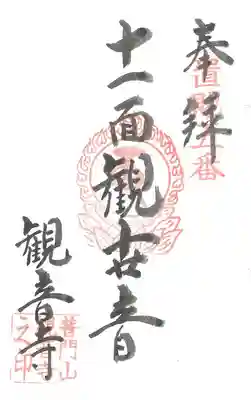 奉拝
十一面観世音
観音寺
普門山
之印